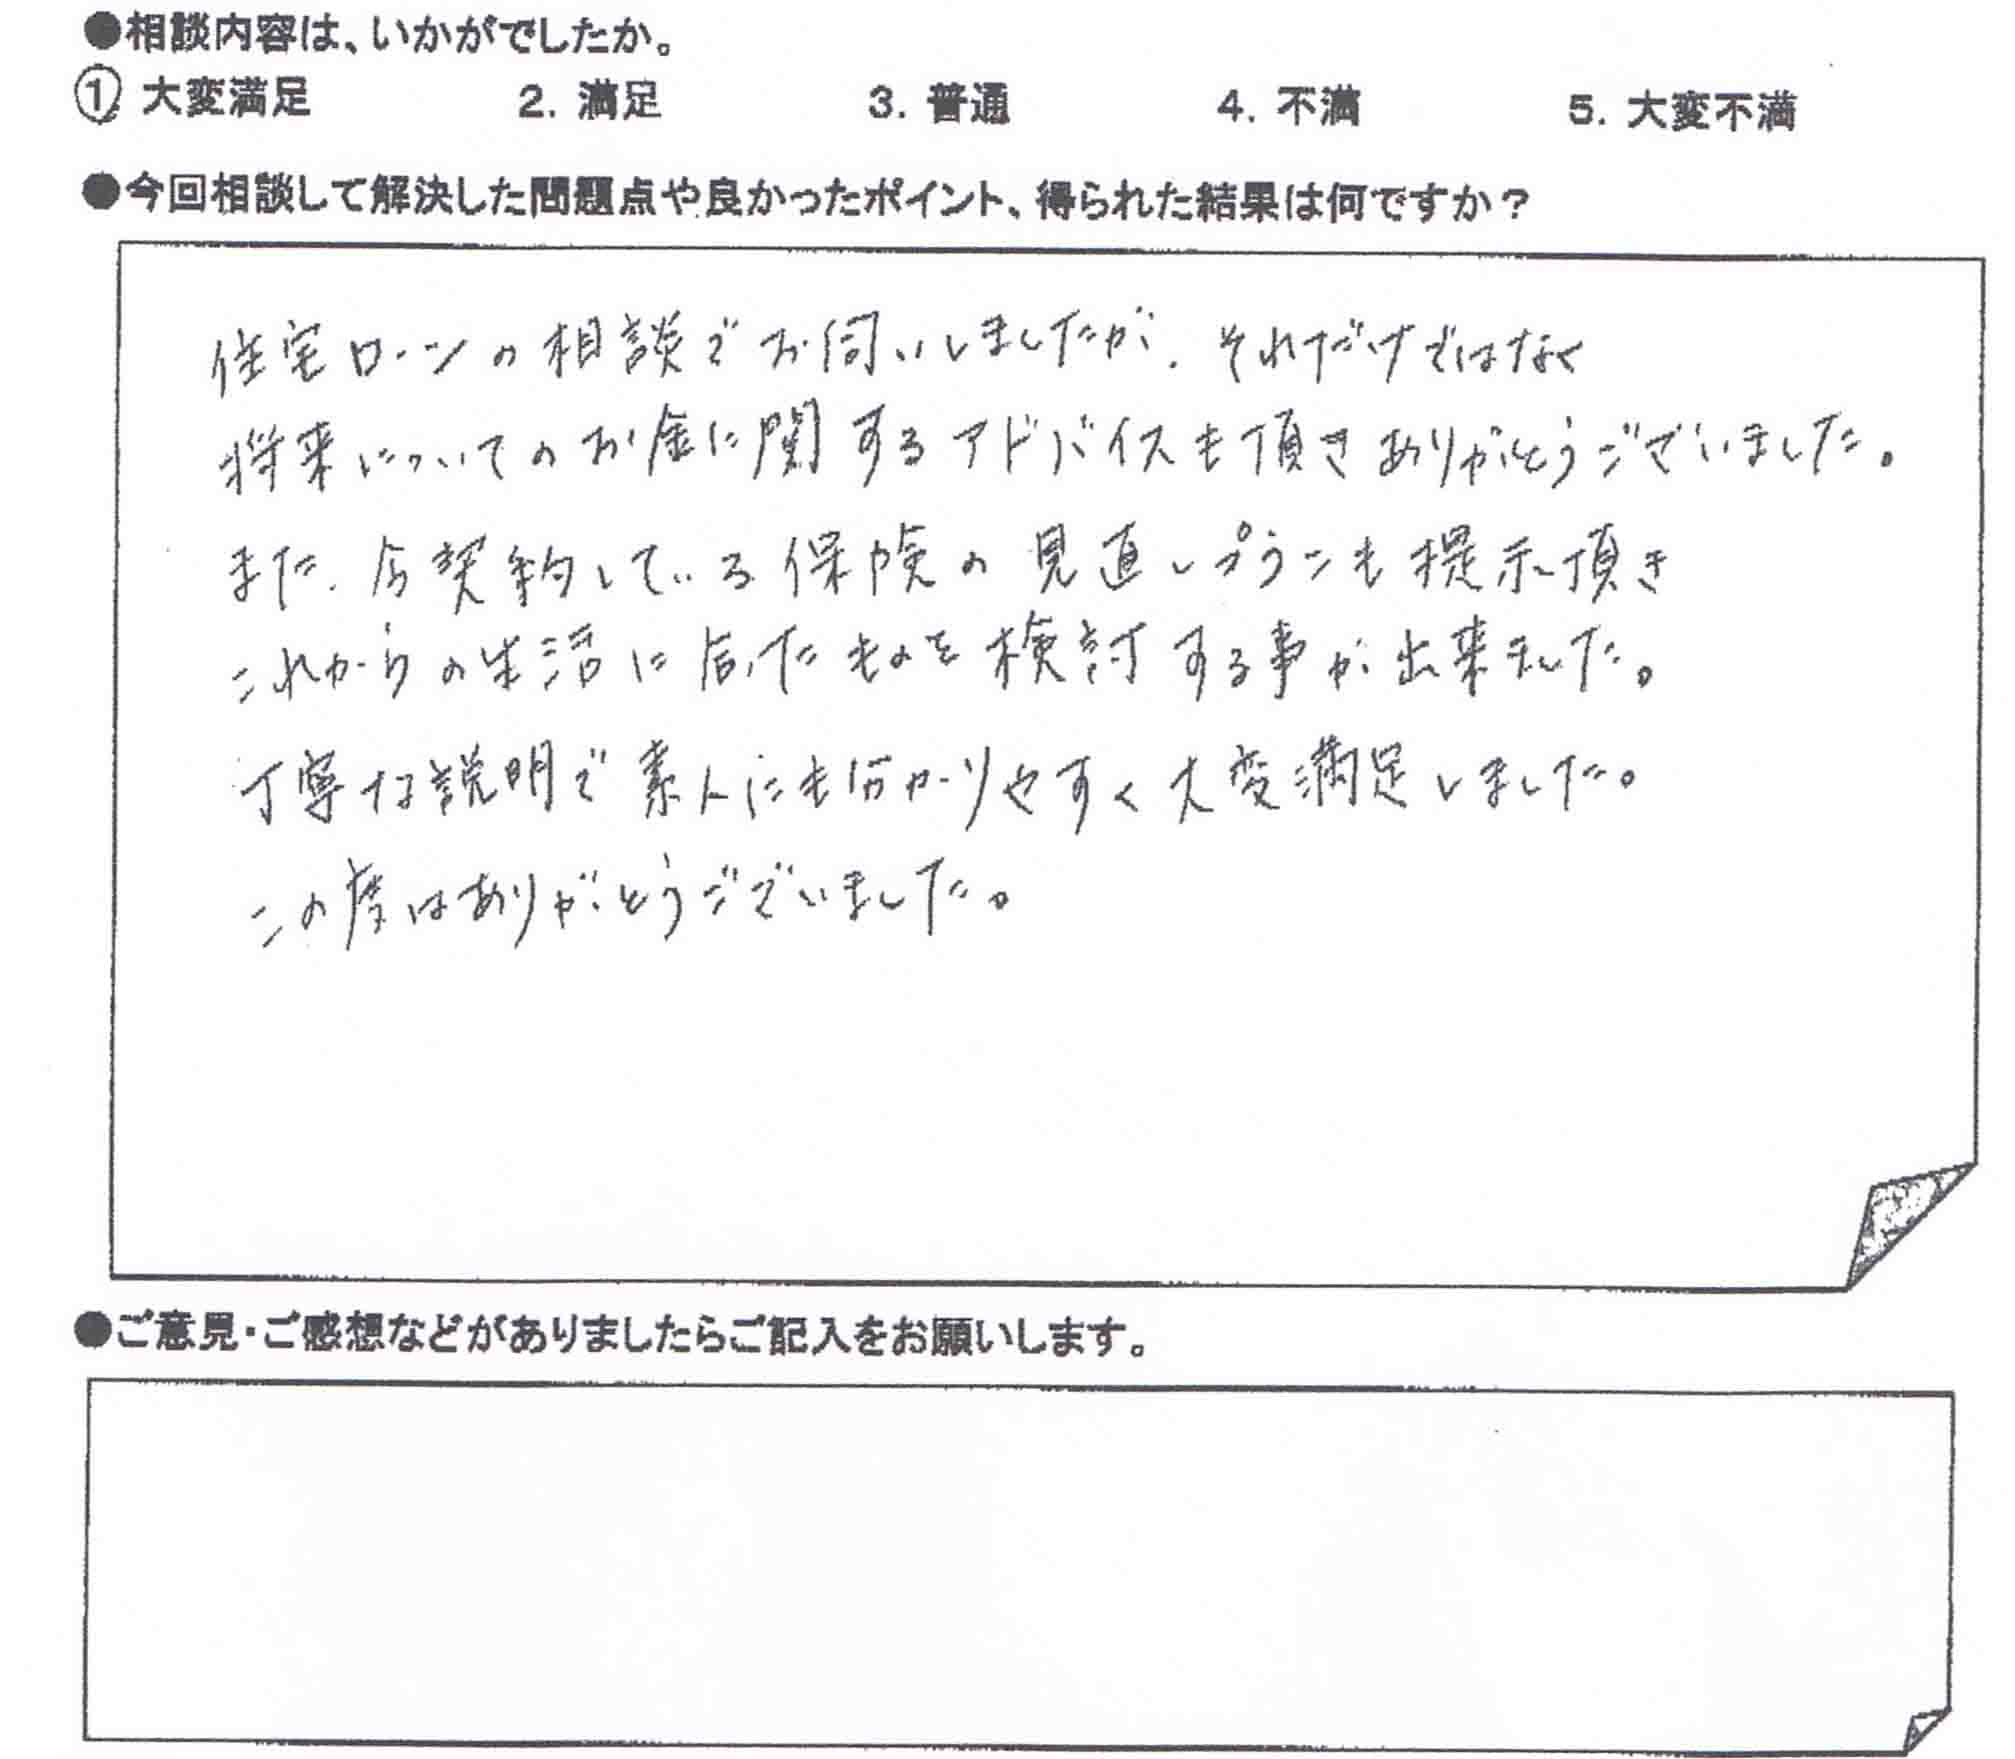 ●相談内容は、いかがでしたか。
① 大変満足 2. 満足 3. 普通 4. 不満 5. 大変不満
●今回相談して解決した問題点や良かったポイント、得られた結果は何ですか?
住宅ローンの相談でお伺いしましたが、それだけではなく
将来についてのお金に関するアドバイスも頂きありがとうございました。
また、今契約している保険の見直しプランも提示頂き
これからの生活に合ったものを検討する事が出来ました。
丁寧な説明で素人にも分かりやすく大変満足しました。
この度はありがとうございました。
●ご意見・ご感想などがありましたらご記入をお願いします。